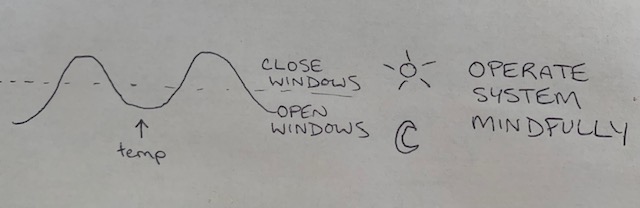 CLOSE
WINDOWS
OPEN
WINDOWS
temp
OPERATE
SYSTEM
MINDFULLY